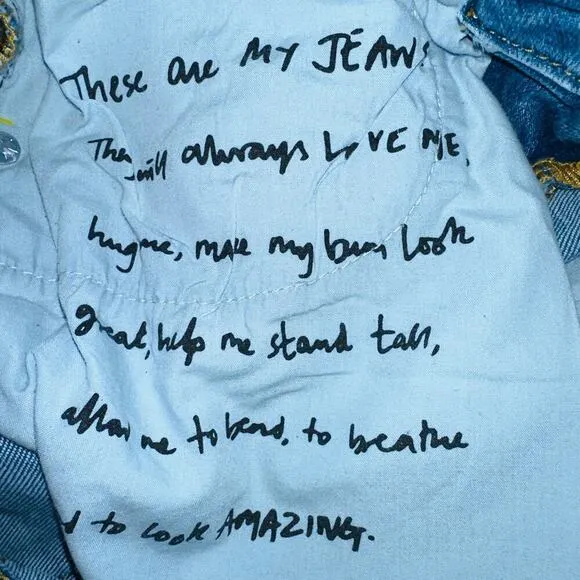 These are MY JEANS
They will always LOVE ME,
hug me, make my bum look
great, help me stand tall,
allow me to bend, to breathe
to look AMAZING.